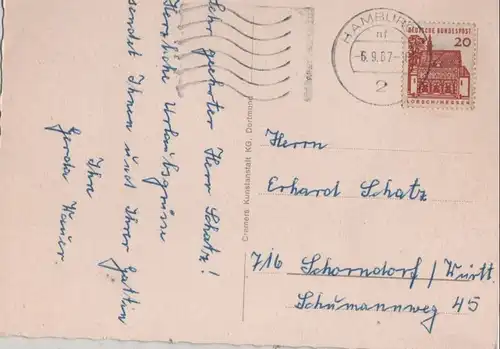 Sehr geehrter Herr Schatz!
Herzliche Urlaubsgrüsse
sendet Ihnen und Ihrer Gattin
Ihre
Gerda Hauer.
Cremers Kunstanstalt KG, Dortmund
HAMBURG
-6.9.67-
2
DEUTSCHE BUNDESPOST
20
LORSCH/HESSEN
Herrn
Erhard Schatz
716 Schorndorf/Württ.
Schumannweg 45